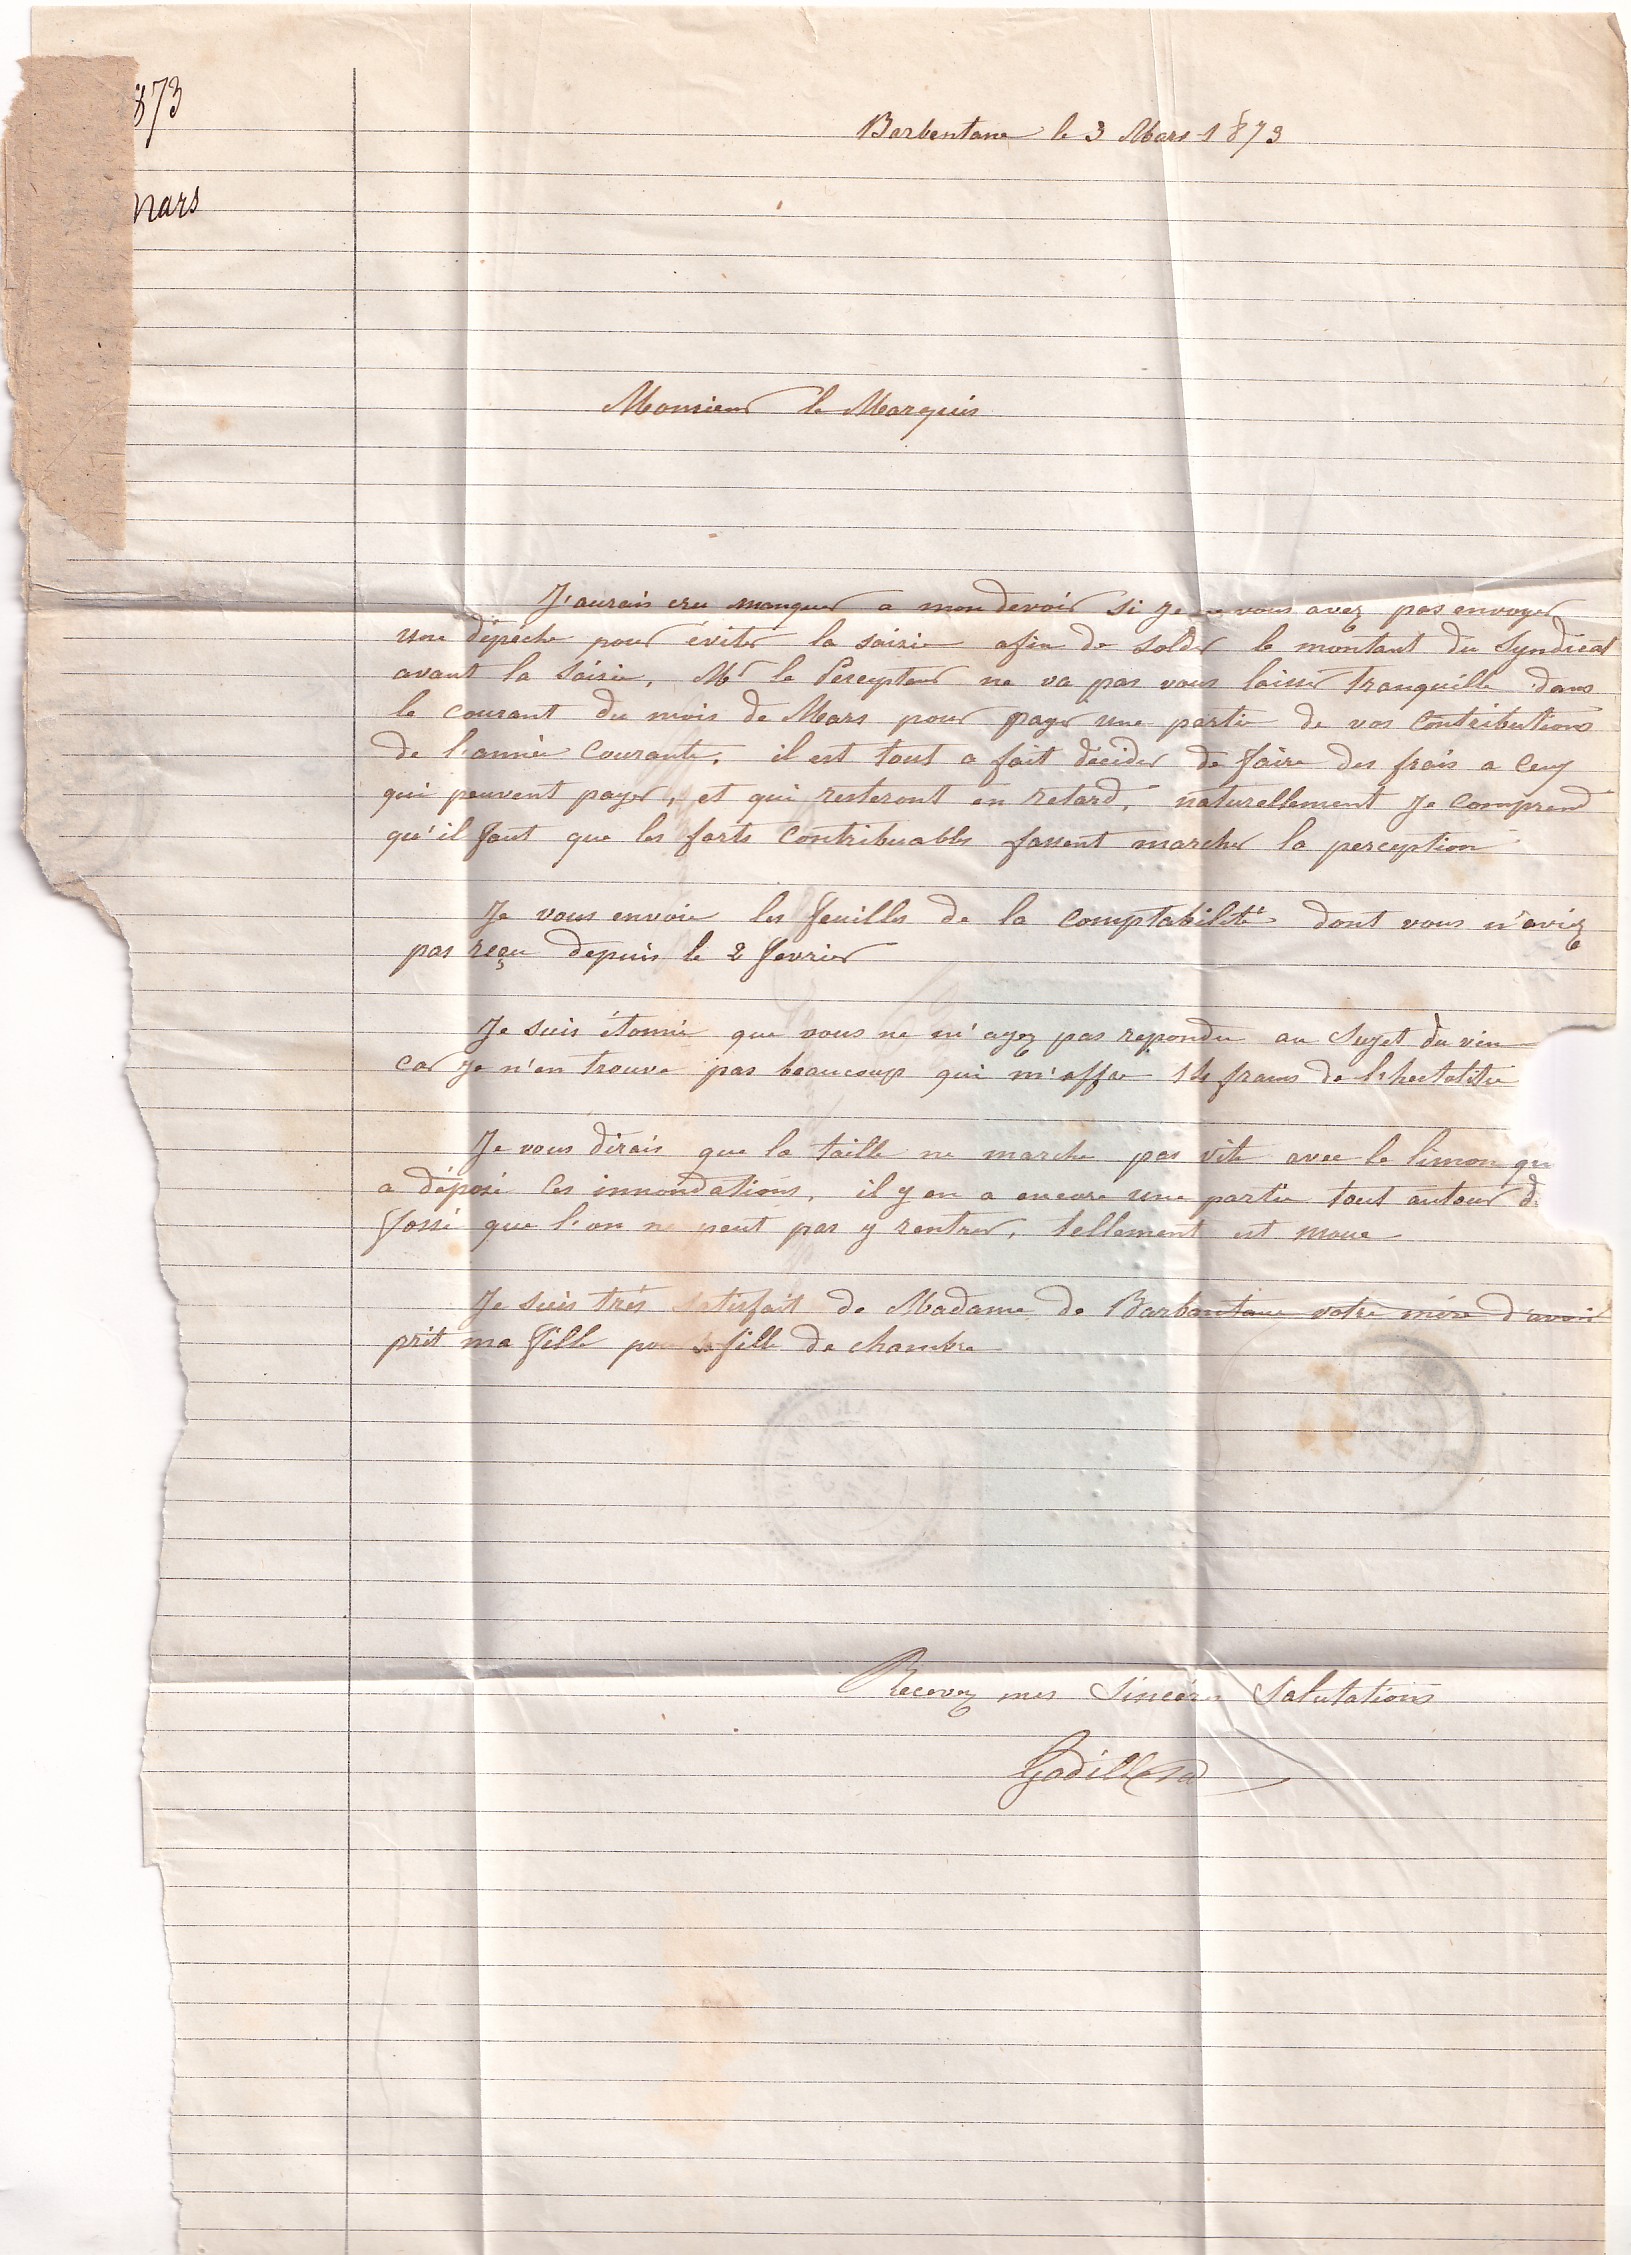 873
mars
Barbentane le 3 Mars 1873
Monsieur le Marquis
J'aurais cru manquer a mon devoir si je ne vous avez pas envoyer
une dépeche pour éviter la saisie afin de solder le montant du Syndicat
avant la Saisie, Mr le Percepteur ne va pas vous laisser tranquille dans
le courant du mois de Mars pour payer une partie de vos Contributions
de l'année Courante, il est tout a fait décider de faire des frais a Ceux
qui peuvent payer, et qui resteront en retard, naturellement je comprend
qu'il faut que les forts Contribuables fassent marcher la perception
Je vous envoie les feuilles de la Comptabilité dont vous n'aviez
pas reçu depuis le 2 fevrier
Je suis étonné que vous ne m'ayez pas repondu au Sujet du vin
car je n'en trouve pas beaucoup qui m'offre 14 francs de l'hectolitre
Je vous dirais que la taille ne marche pas vite avec le limon qu
a déposé les innondations, il y en a encore une partie tout autour d
fossé que l'on ne peut pas y rentrer, tellement est moue
Je suis très satisfait de Madame de Barbantane votre mère d'avoir
prit ma fille pour sa fille de chambre
Recevez mes Sincères Salutations